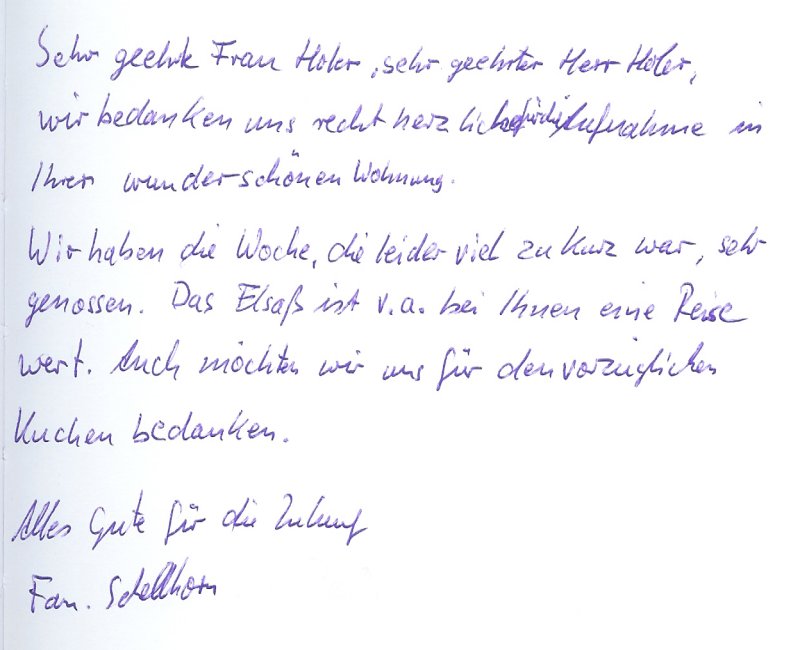 Sehr geehrte Frau Holer, sehr geehrter Herr Holer,
wir bedanken uns recht herzlich für die Aufnahme in
Ihrer wunderschönen Wohnung.
Wir haben die Woche, die leider viel zu kurz war, sehr
genossen. Das Elsaß ist v.a. bei Ihnen eine Reise
wert. Auch möchten wir uns für den vorzüglichen
Kuchen bedanken.
Alles Gute für die Zukunft
Fam. Schellhorn